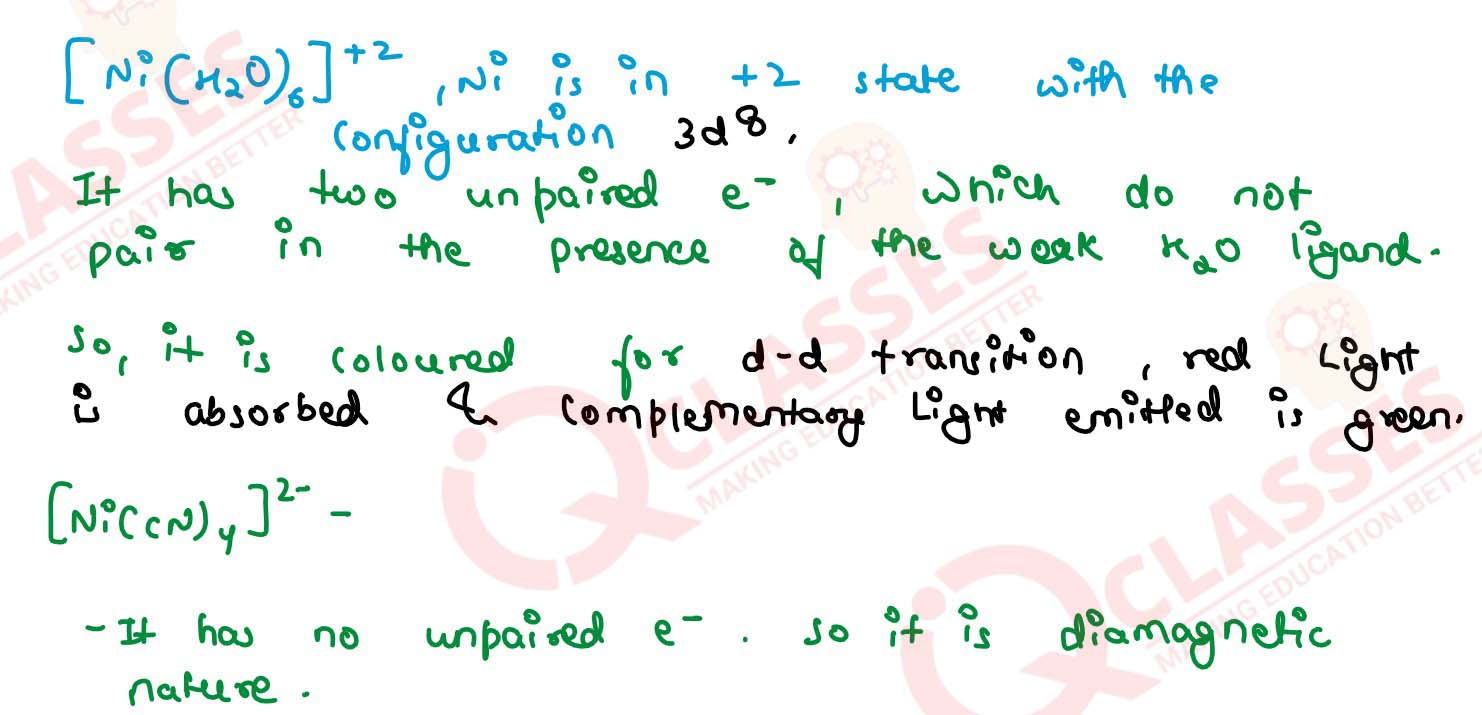 [Ni(H₂O)₆]⁺², Ni is in +2 state with the
configuration 3d⁸.
It has two unpaired e⁻, which do not
pair in the presence of the weak H₂O ligand.
So, it is coloured for d-d transition, red Light
is absorbed & complementary Light emitted is green.
[Ni(CN)₄]²⁻ -
- It has no unpaired e⁻. so it is diamagnetic
nature.
CLASSES
MAKING EDUCATION BETTER
CLASSES
MAKING EDUCATION BETTER
CLASSES
MAKING EDUCATION BETTER